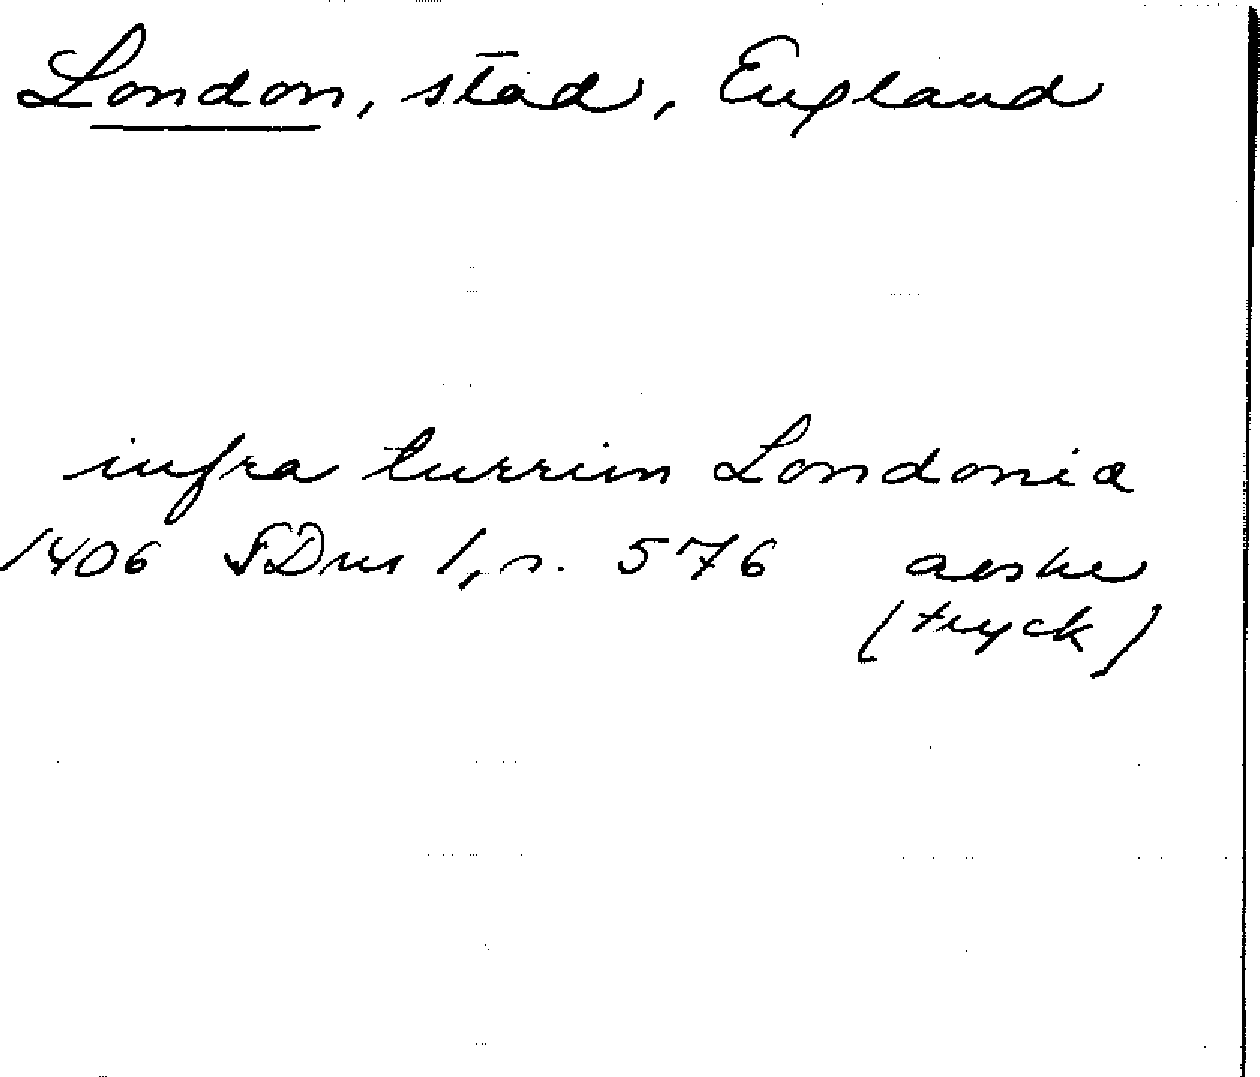 London, stad, England
infra turrim Londonia
1406 SDns 1, s. 576 avskr
(tryck)